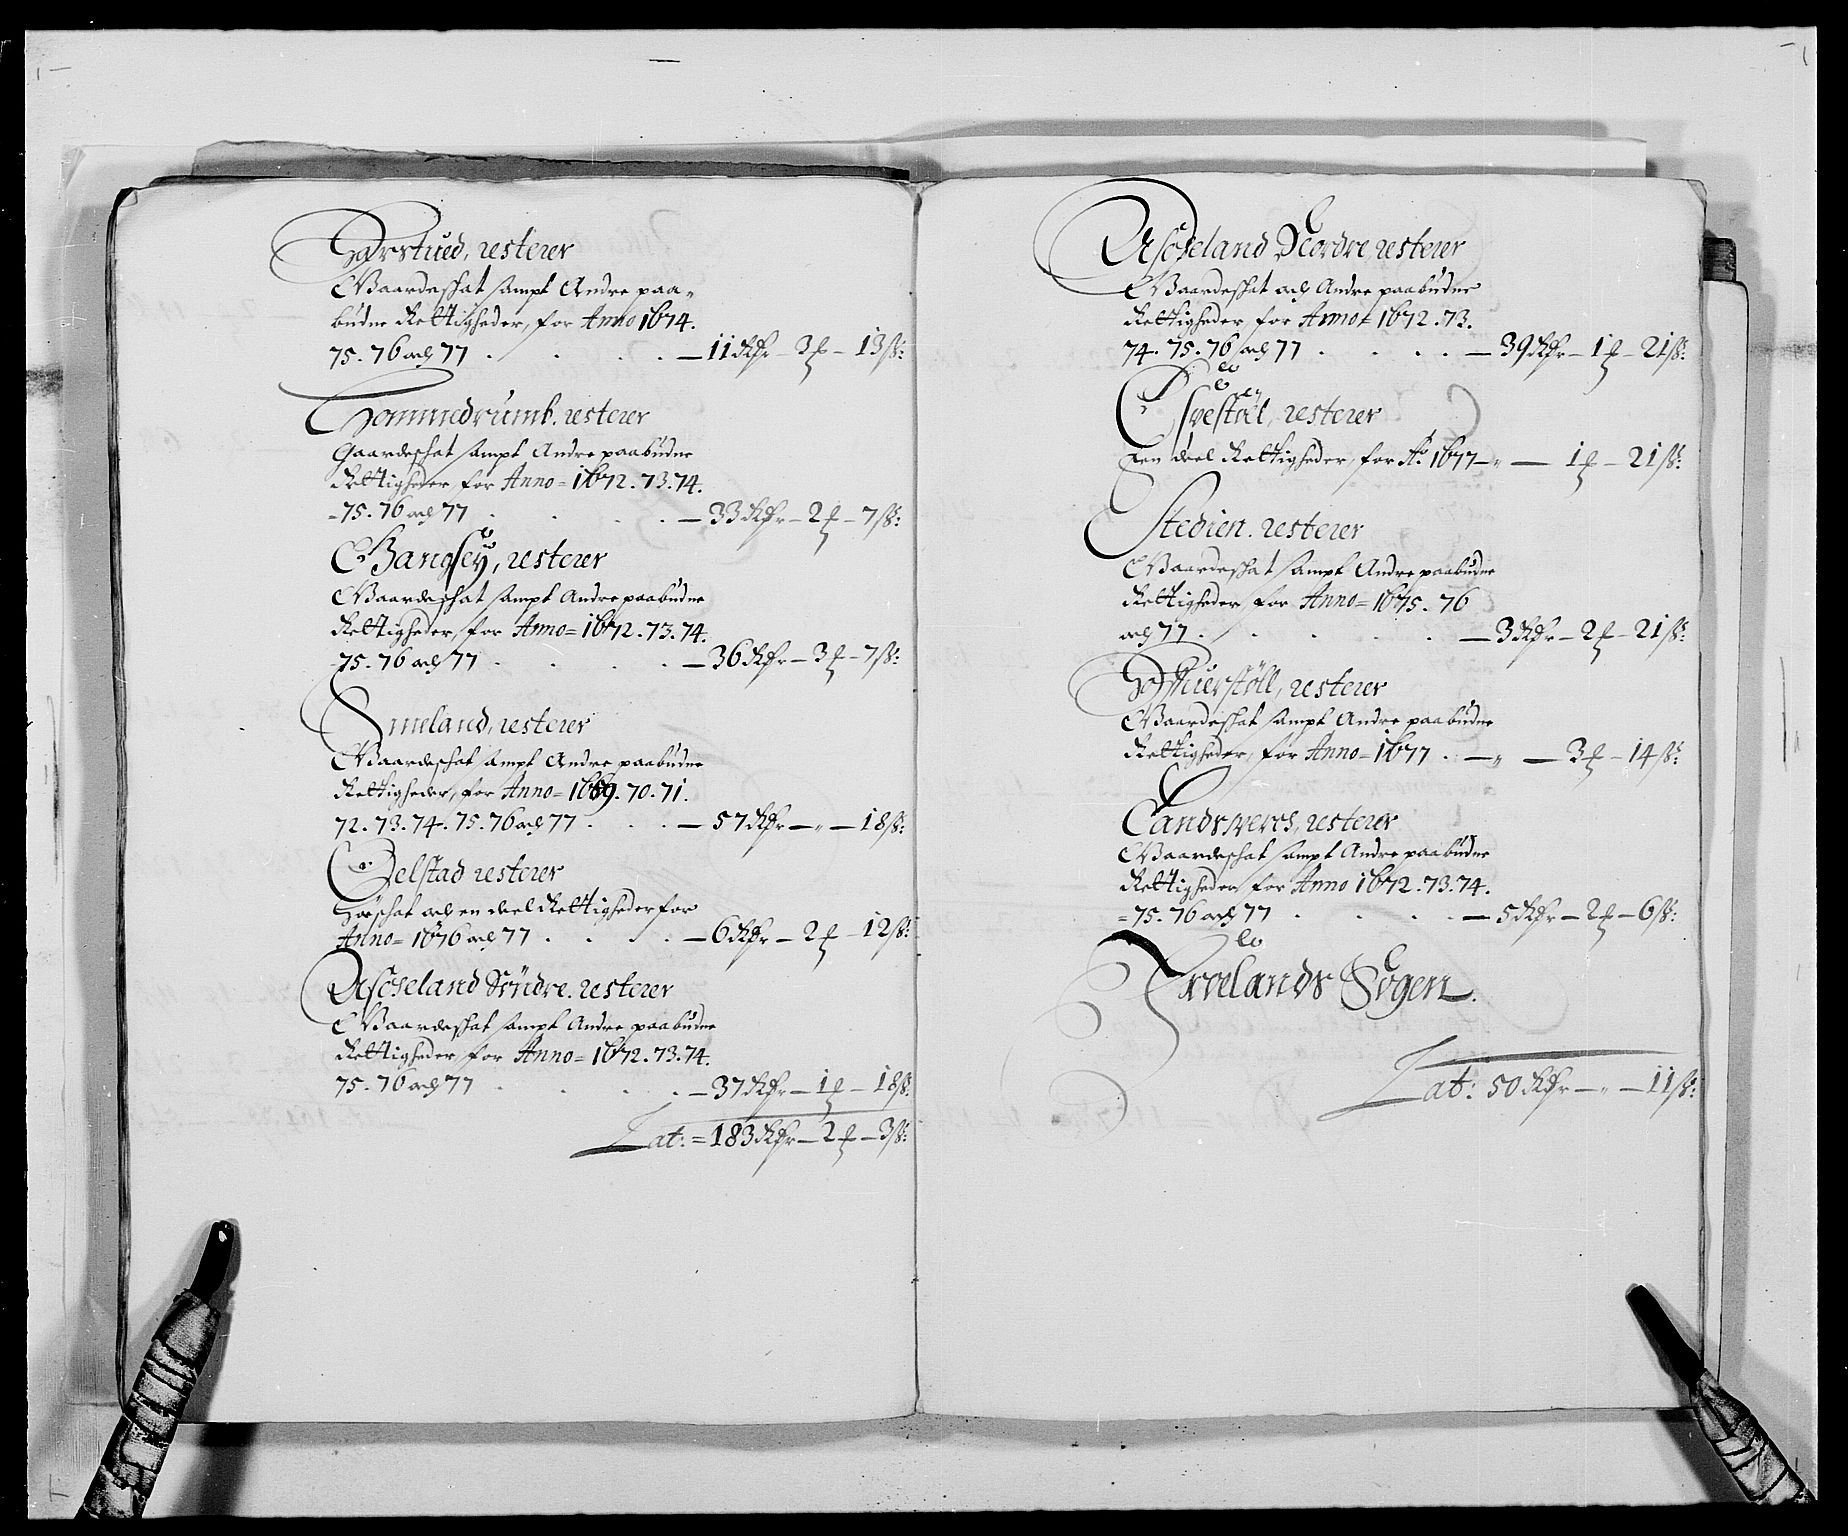 Harstued, resterer
Gaardeschat sampt Andre paa-
budne Rettigheder, for Anno 1674.
75. 76 och 77 . . . . — 11 Rdr — 3 ƒ — 13 ß:
Hommedrumb. resterer
Gaardeschat sampt Andre paabudne
Rettigheder for Anno = 1672. 73. 74.
- 75. 76 och 77 . . . . — 33 Rdr — 2 ƒ — 7 ß:
Bangsey, resterer
Gaardeschat sampt Andre paabudne
Rettigheder, for Anno = 1672. 73. 74.
75. 76 och 77 . . . . — 36 Rdr — 3 ƒ — 7 ß:
Omeland, resterer
Gaardeschat sampt Andre paabudne
Rettigheder, for Anno = 1669. 70. 71.
72. 73. 74. 75. 76 och 77 . . . — 57 Rdr — „ — 18 ß:
Gelstad resterer
och en deel Rettigheder for
Anno = 1676 och 77 . . . . — 6 Rdr — 2 ƒ — 12 ß:
Aschseland Söndre. resterer
Gaardeschat sampt Andre paabudne
Rettigheder for Anno = 1672. 73. 74.
75. 76 och 77 . . . . — 37 Rdr — 1 ƒ — 18 ß:
Lat: = 183 Rdr — 2 ƒ — 3 ß:
Aschseland Nordre resterer
Gaardeschat och Andre paabudne
Rettigheder for Anno = 1672. 73.
74. 75. 76 och 77 . . . . — 39 Rdr — 1 ƒ — 21 ß:
resterer
Een deel Rettigheder, for Ao 1677 — „ — 1 ƒ — 21 ß:
Stedien. resterer
Gaardeschat sampt Andre paabudne
Rettigheder for Anno = 1675. 76
och 77 . . . . . — 3 Rdr — 2 ƒ — 21 ß:
resterer
Gaardeschat sampt Andre paabudne
Rettigheder, for Anno = 1677 . — „ — 3 ƒ — 14 ß:
resterer
Gaardeschat sampt Andre paabudne
Rettigheder for Anno 1672. 73. 74.
= 75. 76 och 77 . . . . — 5 Rdr — 2 ƒ — 6 ß:
Sogen.
Lat: 50 Rdr — „ — 11 ß: